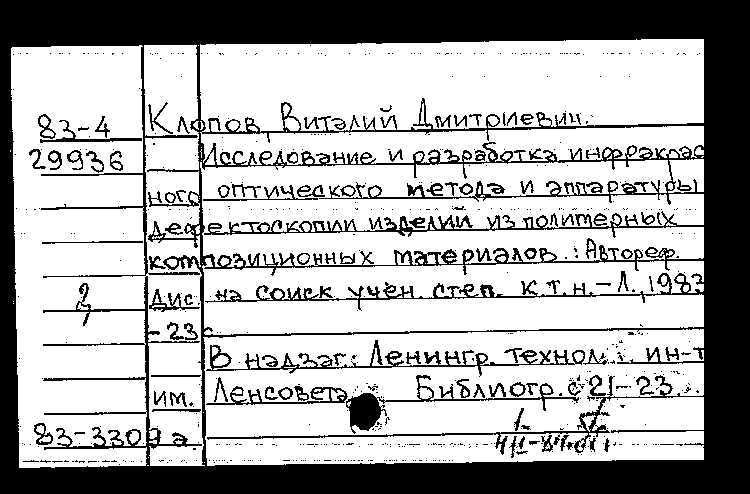 83-4 Клопов, Виталий Дмитриевич.
29936 Исследование и разработка инфракрас
ного оптического метода и аппаратуры
дефектоскопии изделий из полимерных
композиционных материалов.: Автореф.
дис. на соиск учен. степ. к.т.н.-Л., 1983
-23с
В надзаг.: Ленингр. технол. ин-т
им. Ленсовета. Библиогр. с 21-23.
83-3309а